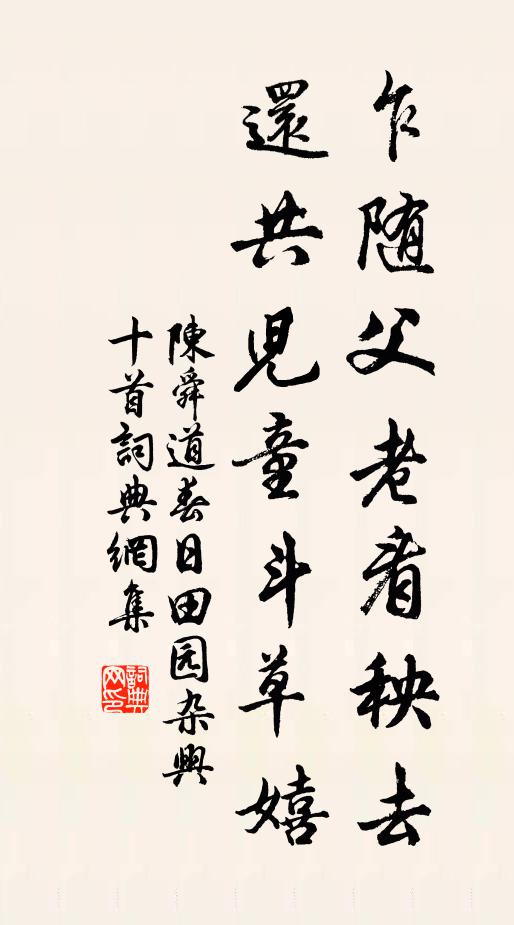 乍随父老看秧去
還共兒童斗草嬉
陳舜道春日田园杂興
十首詞典網集
詞典
网印